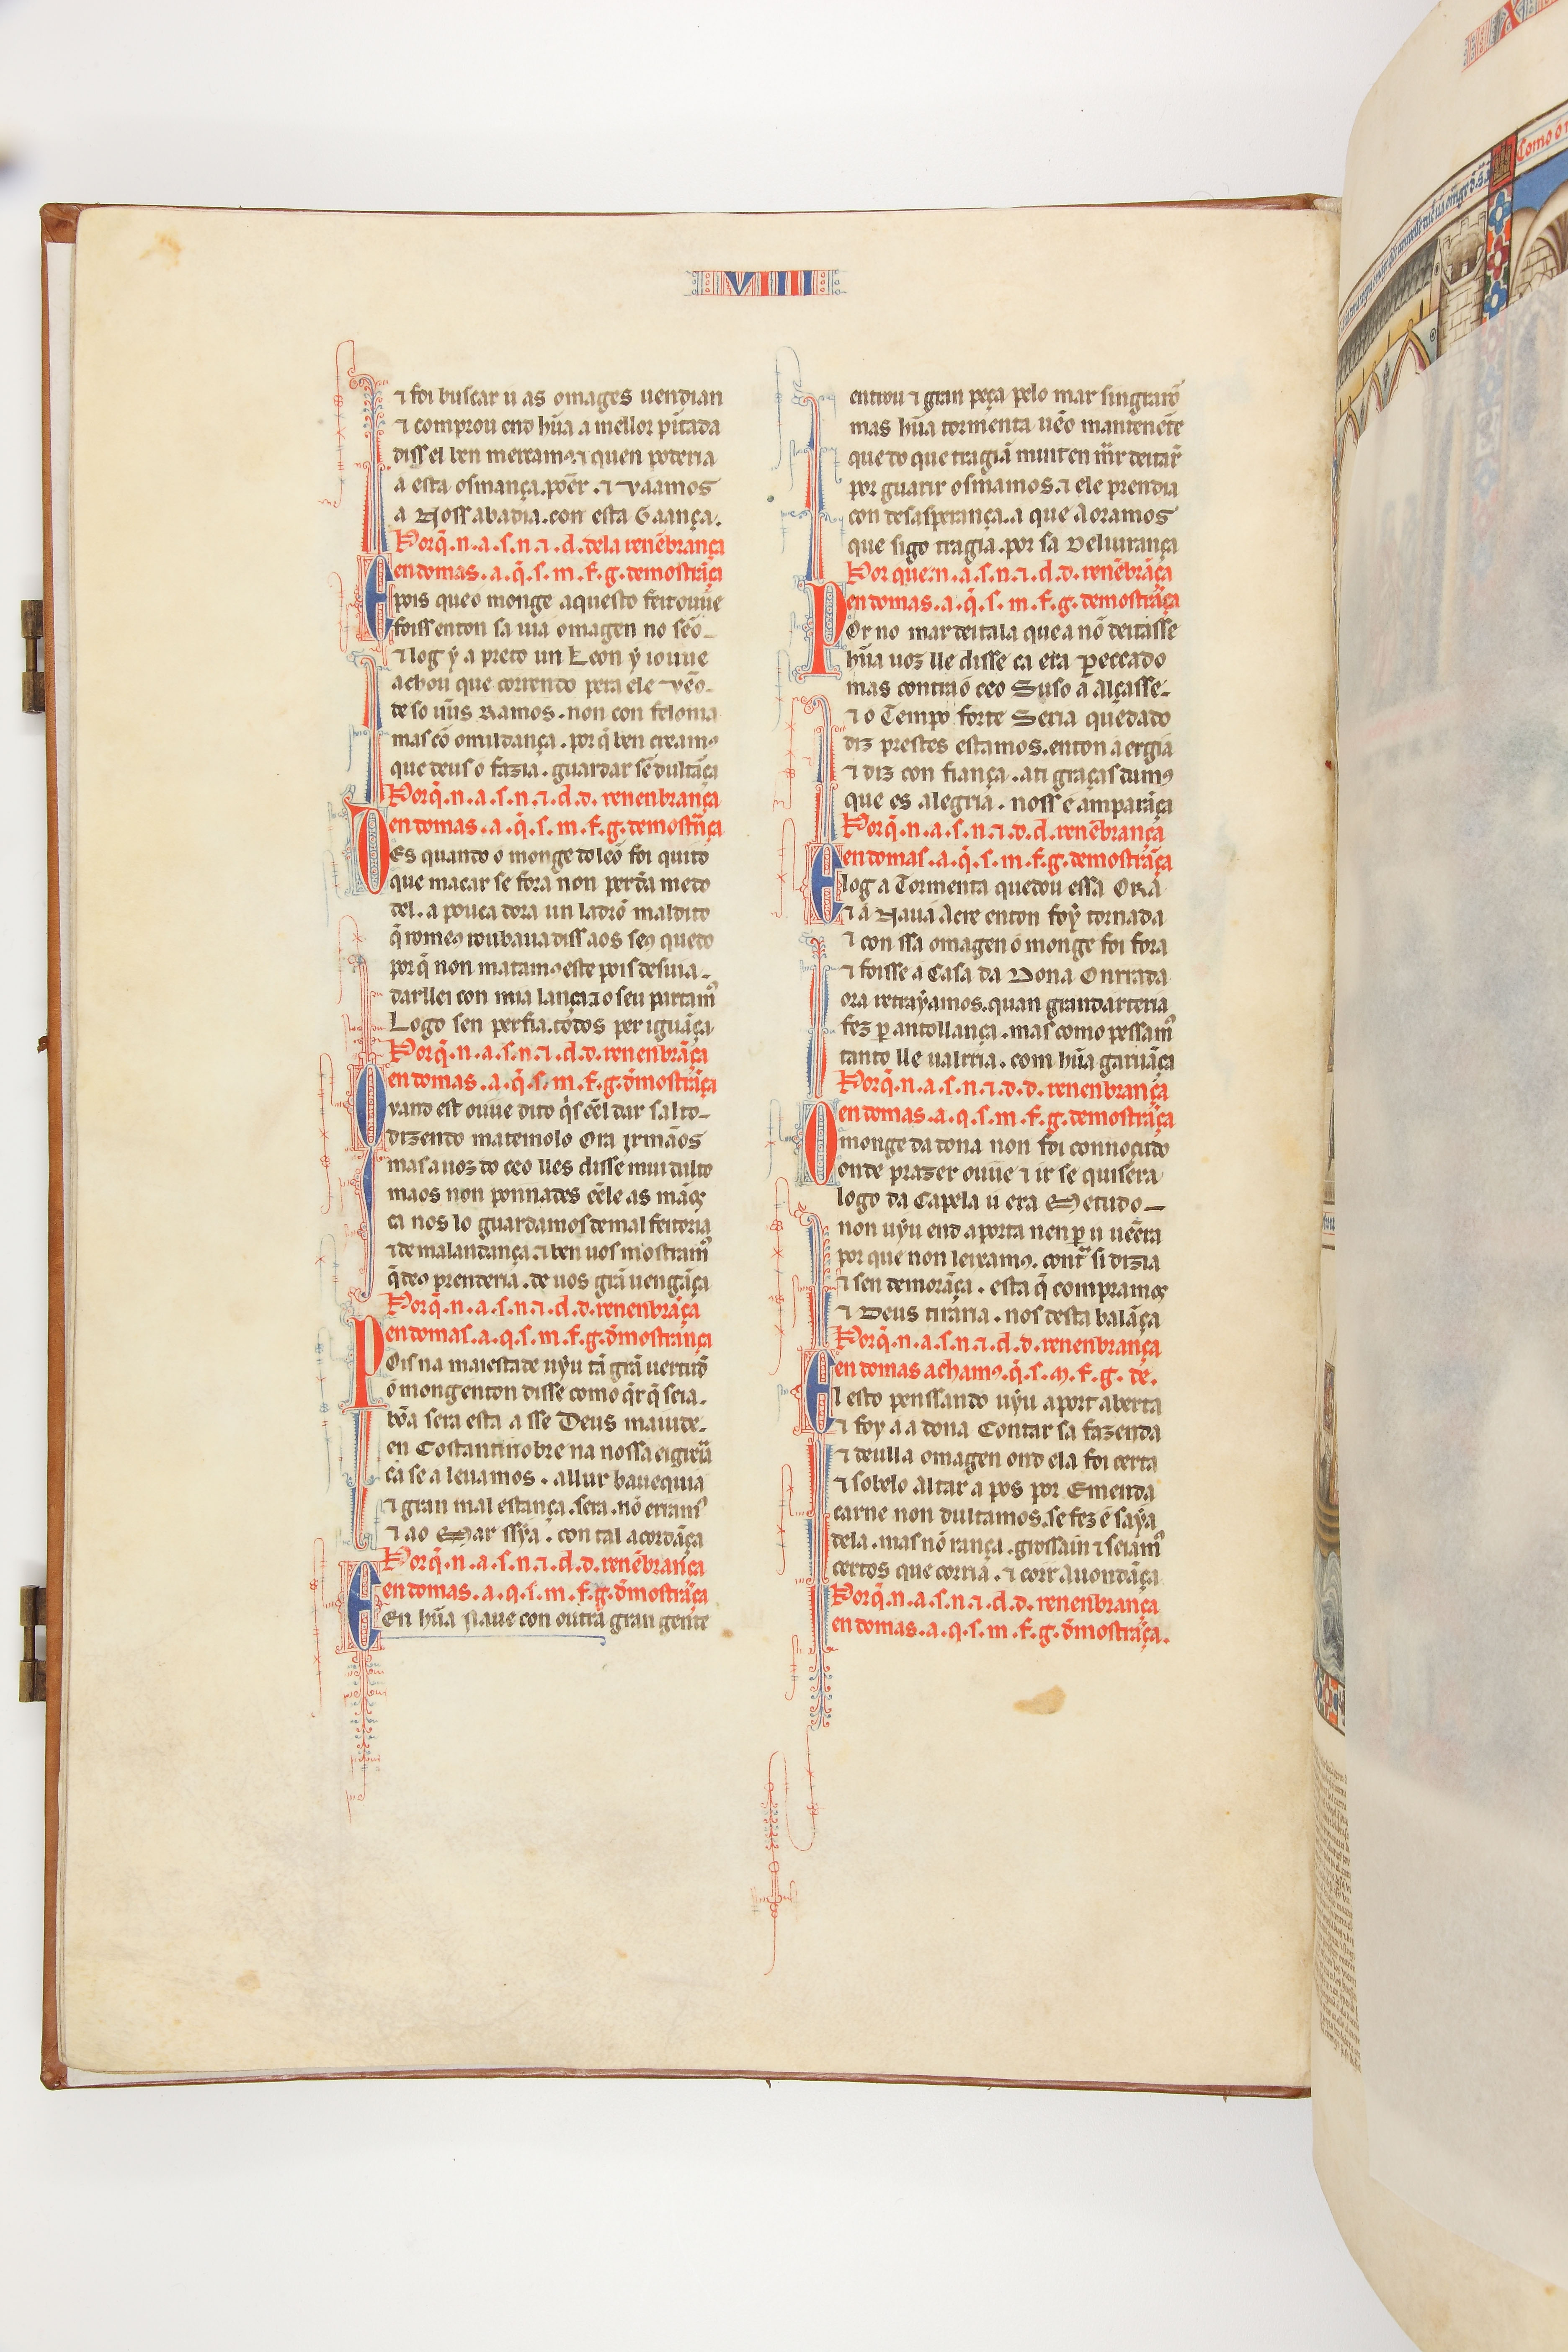 VIIII
⁊ foi buscar u as omages uendian
⁊ comprou end hũa a mellor pītada
diss el ben mercamꝰ ⁊ quen poderia
a esta osmança. põer. ⁊ Vaamos
a Noss abadia. con esta Gaança.
Porq̃. n. a. s. n. ⁊. d. dela renẽbrança
en domas. a. q̃. s. m. f. g. demostrãça
E pois que o monge aquesto feit ouue
foiss enton sa uia omagen no sẽo
⁊ log ẏ a preto un Leon ẏ iouue
achou que correndo pera ele vẽo
de so ũus Ramos. non con felonia
mas cõ omildança. por q̃ ben creamꝰ
que deus o fazia. guardar sẽ dultãça
Porq̃. n. a. s. n. ⁊. d. d. renenbrança
en domas. a. q̃. s. m. f. g. demostrãça
Des quando o monge do leõ foi quito
que macar se fora non perdia medo
del. a pouca dora un ladrõ maldito
q̃ romeꝰ roubaua diss aos seꝰ quedo
por q̃ non matamꝰ este pois desuia
darllei con mia lança ⁊ o seu partamꝰ
Logo sen perfia. todos per iguãça
Porq̃. n. a. s. n. ⁊. d. d. renenbrãça
en domas. a. q̃. s. m. f. g. d̃mostrãça
Quand est ouue dito q̃s eẽl dar salto
dizendo matemolo Ora yrmãos
mas a uoz do ceo lles disse mui dalto
maos non ponnades eẽle as mãos
ca nos lo guardamos de mal feitoria
⁊ de malandança. ⁊ ben uos mostramꝰ
q̃ deꝰ prenderia. de uos grã uengãça
Porq̃. n. a. s. n. ⁊. d. d. renenbrãça
en domas. a. q. s. m. f. g. d̃mostrança
Pois na maiestade uẏu tã grã uertude
o mong enton disse como q̃r q̃ seia.
bõa sera esta a sse Deus maiude
en Costantinobre na nossa eigreia
ca se a leuamos. allur bauequia
⁊ gran mal estança. sera. nõ erramꝰ
⁊ ao Mar ssẏa. con tal acordãça
Porq̃. n. a. s. n. ⁊. d. d. renẽbrança
en domas. a. q. s. m. f. g. d̃mostrãça
En hũa Naue con outra gran gente
entrou ⁊ gran peça pelo mar singrarõ
mas hũa tormenta uẽo mantenẽte
que do que tragiã muit en mr̃ deitarõ
por guarir osmamos. ⁊ ele prendia
con desasperança. a que Aoramos
que sigo tragia. por sa Deliurança
Por que. n. a. s. n. ⁊. d. d. renẽbrãça
en domas. a. q̃. s. m. f. g. demostrãça
Por no mar deitala que a nõ deitasse
hũa uoz lle disse ca era peccado
mas contra o ceo Suso a alçasse
⁊ o Tempo forte Seria quedado
diz prestes estamos. enton a ergia
⁊ diz con fiança. ati graças damꝰ
que es alegria. noss e amparãça
Porq̃. n. a. s. n. ⁊. d. d. renẽbrança
en domas. a. q̃. s. m. f. g. demostrãça
E log a Tormenta quedou essa Ora
⁊ a Naua Acre enton foẏ tornada
⁊ con ssa omagen o monge foi fora
⁊ foisse a Casa da Dona Onrrada
ora retraẏamos. quan grand arteria
fez p̲ antollança. mas como pessamꝰ
tanto lle ualrria. com hũa garuãça
Porq̃. n. a. s. n. ⁊. d. d. renenbrança
en domas. a. q. s. m. f. g. demostrãça
O monge da dona non foi connoçudo
onde prazer ouue ⁊ ir se quisera
logo da Capela u era Metudo
non uẏu end aporta nen p̲ u uẽera
por que non leixamꝰ. contra si dizia
⁊ sen demorãça. esta q̃ compramos
⁊ Deus tiraria. nos desta balãça
Porq̃. n. a. s. n. ⁊. d. d. renenbrança
en domas achamꝰ. q̃. s. m. f. g. de.
El esto penssando uẏu a port aberta
⁊ foẏ a a dona Contar sa fazenda
⁊ deulla omagen ond ela foi certa
⁊ sobelo Altar a pos por Emenda
carne non dultamos. se fez e saẏa
dela. mas nõ rança. grossain ⁊ seiamꝰ
certos que corria. ⁊ corr Auondãça
Porq̃. n. a. s. n. ⁊. d. d. renenbrança
en domas. a. q. s. m. f. g. d̃mostrãça.
Como o